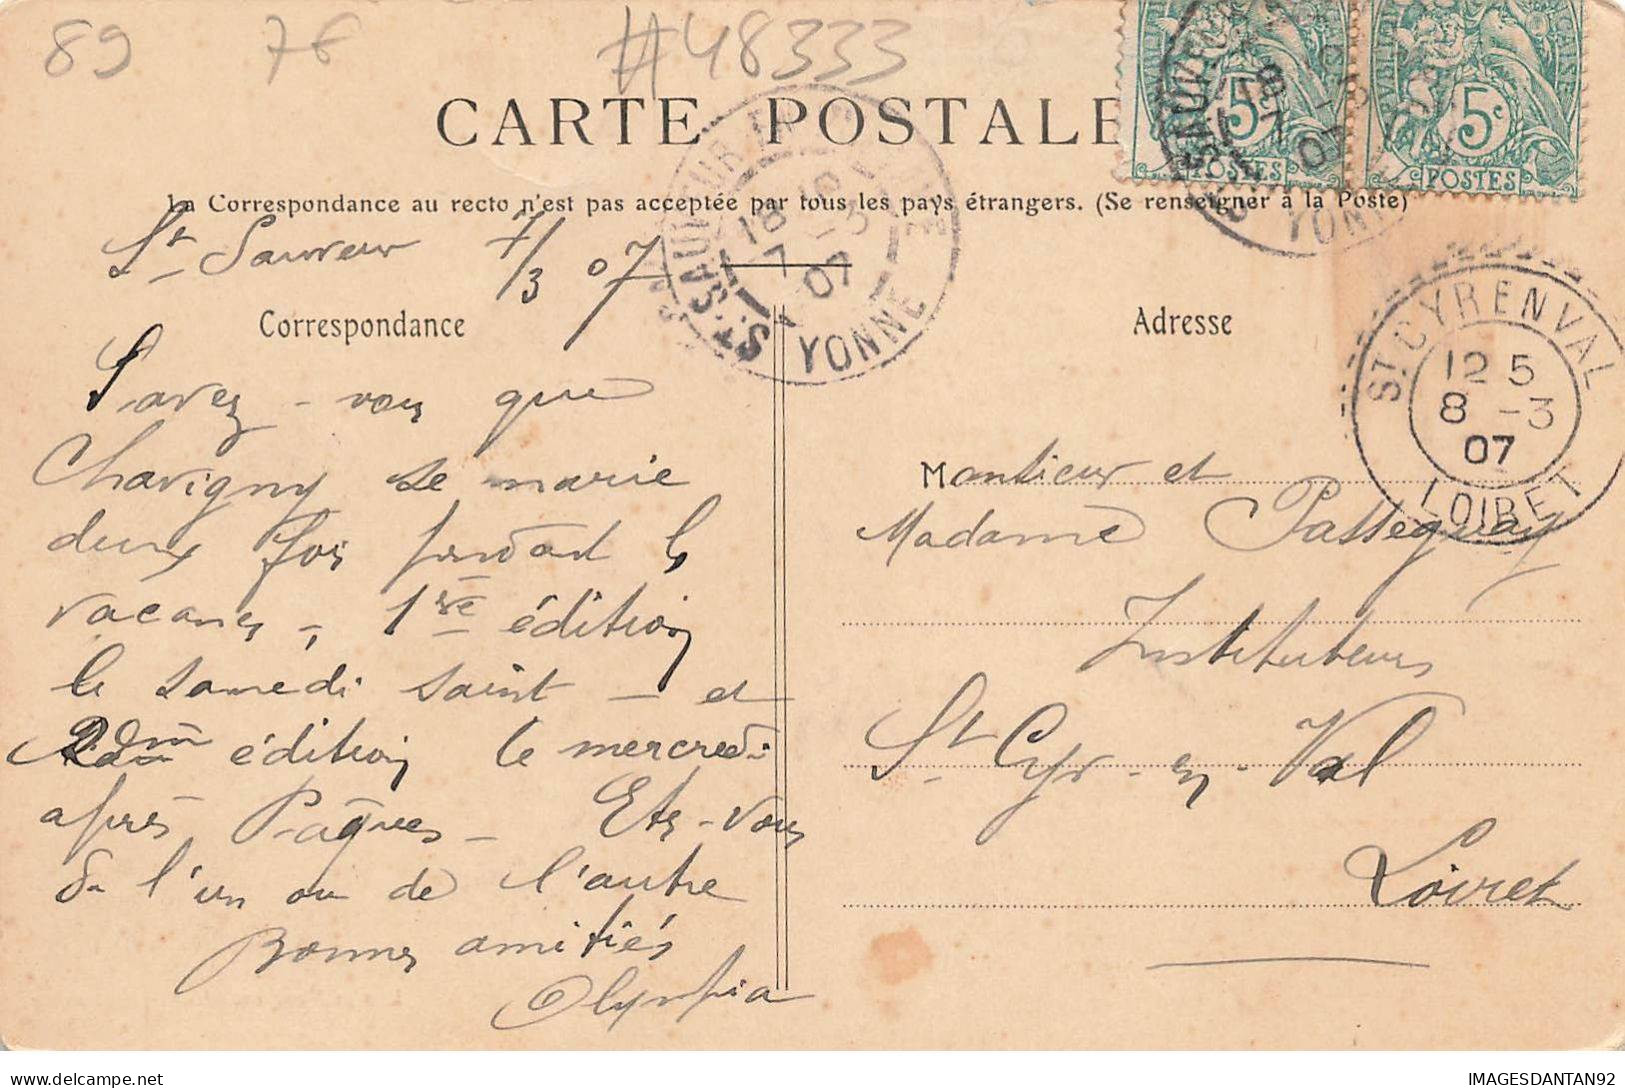 89 76 #48333
CARTE POSTALE
La Correspondance au recto n'est pas acceptée par tous les pays étrangers. (Se renseigner à la Poste)
5c
POSTES
5c
POSTES
ST SAUVEUR EN
18
7 -3
07
YONNE
ST CYR EN VAL
12 5
8 -3
07
LOIRET
St Sauveur 7/3 07
Correspondance
Savez-vous que
Chavigny se marie
deux fois pendant les
vacances, 1re édition
le samedi saint - et
2dm édition le mercredi
après Pâques - Etes-vous
de l'un ou de l'autre
Bonnes amitiés
Olympia
Adresse
Monsieur et
Madame Passeguay
Instituteurs
St Cyr-en-Val
Loiret
IMAGESDANTAN92